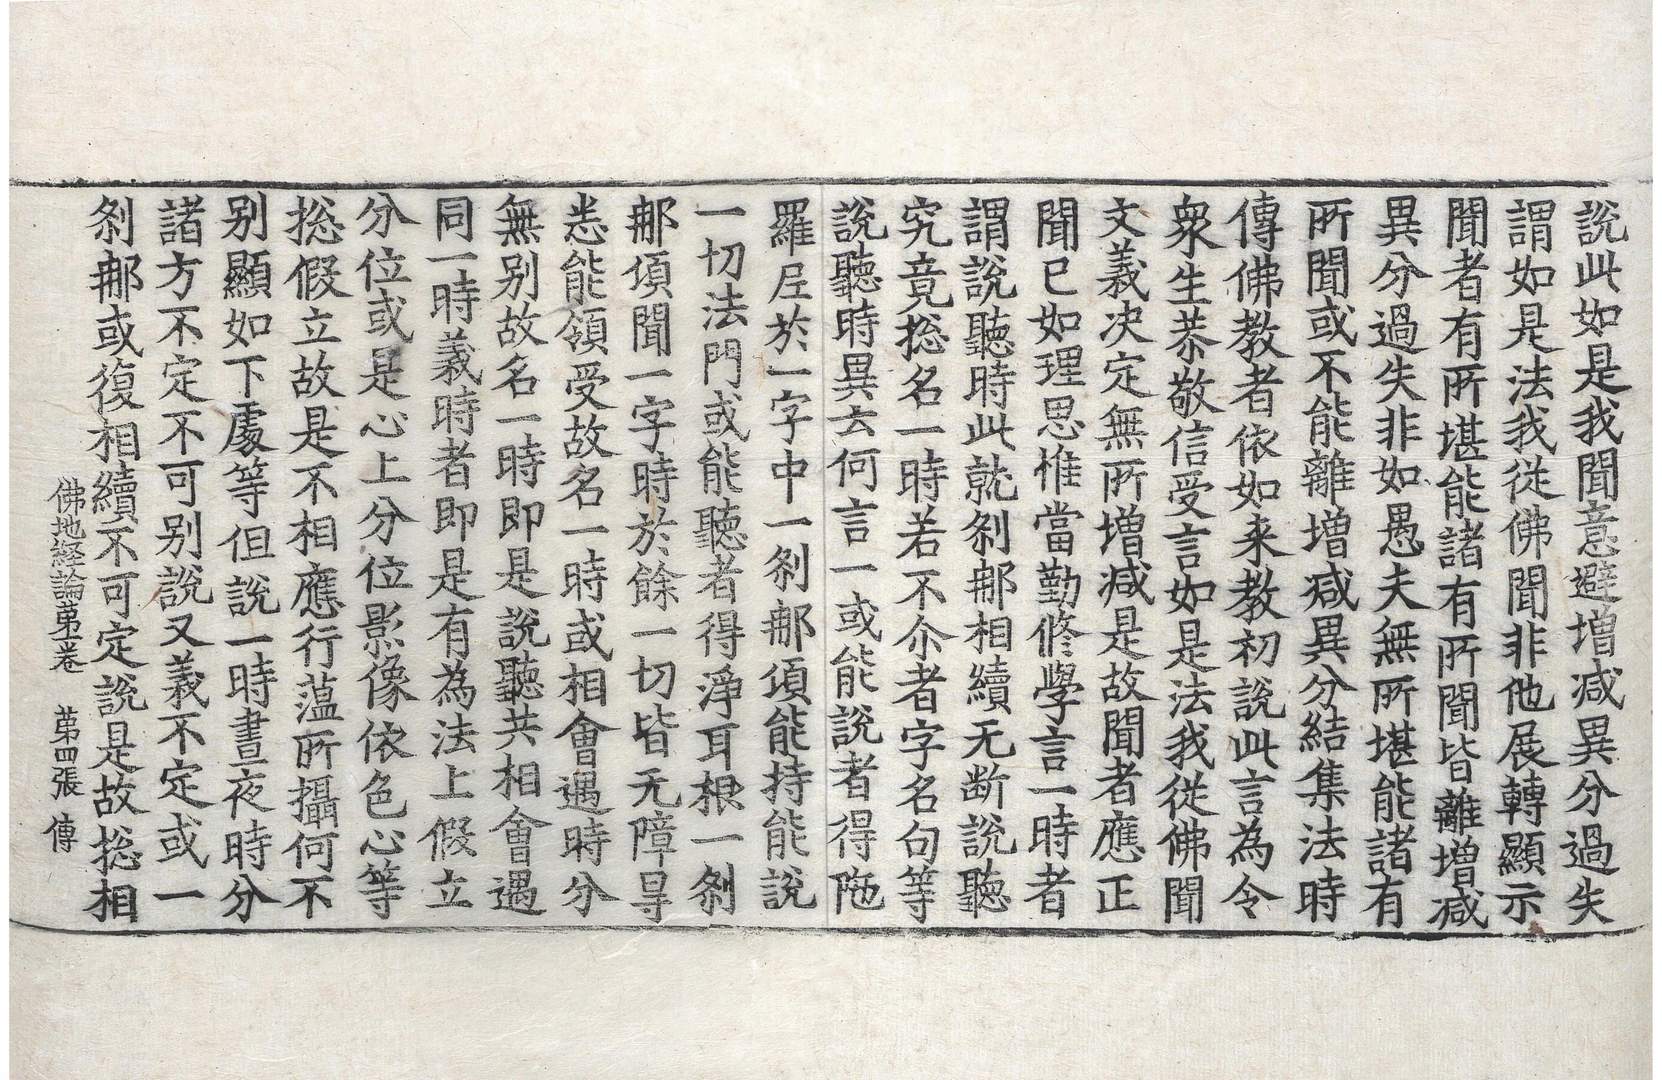 說此如是我聞意避增减異分過失
謂如是法我從佛聞非他展轉顯示
聞者有所堪能諸有所聞皆離增减
異分過失非如愚夫無所堪能諸有
所聞或不能離增减異分結集法時
傳佛教者依如来教初說此言為令
衆生恭敬信受言如是法我從佛聞
文義决定無所增减是故聞者應正
聞已如理思惟當勤修學言一時者
謂說聽時此就刹那相續无断說聽
究竟揔名一時若不尒者字名句等
說聽時異云何言一或能說者得陁
羅尼於一字中一刹那頃能持能說
一切法門或能聽者得淨耳根一刹
那頃聞一字時於餘一切皆无障㝵
悉能領受故名一時或相會遇時分
無别故名一時即是說聽共相會遇
同一時義時者即是有為法上假立
分位或是心上分位影像依色心等
揔假立故是不相應行薀所攝何不
别顯如下處等但說一時晝夜時分
諸方不定不可别說又義不定或一
刹那或復相續不可定說是故揔相
佛地経論苐一卷　苐四張　傳